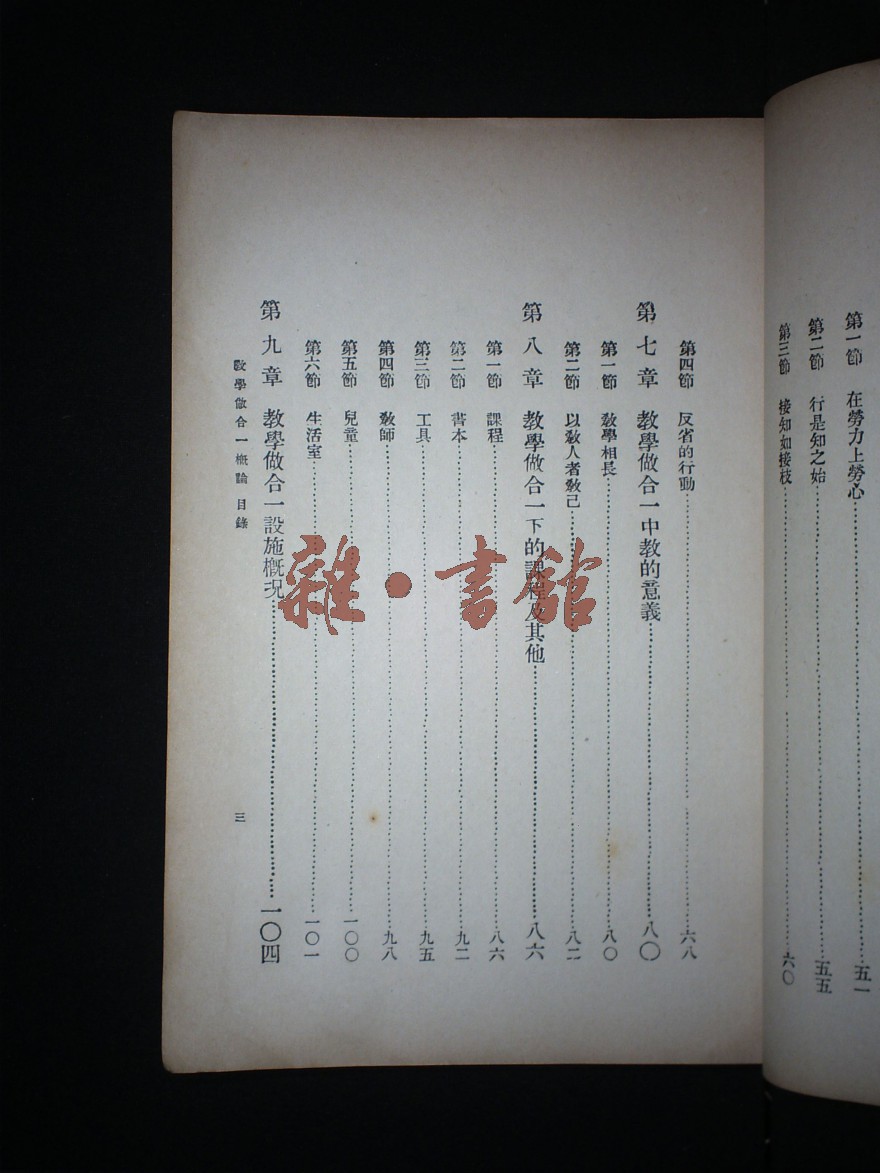 第一節　在勞力上勞心…………五一
第二節　行是知之始…………五五
第三節　接知如接枝…………六〇
第四節　反省的行動…………六八
第七章　教學做合一中教的意義…………八〇
第一節　教學相長…………八〇
第二節　以教人者教己…………八二
第八章　教學做合一下的課程及其他…………八六
第一節　課程…………八六
第二節　書本…………九二
第三節　工具…………九五
第四節　教師…………九八
第五節　兒童…………一〇〇
第六節　生活室…………一〇一
第九章　教學做合一設施概況…………一〇四
教學做合一概論　目錄　三
雜·書館